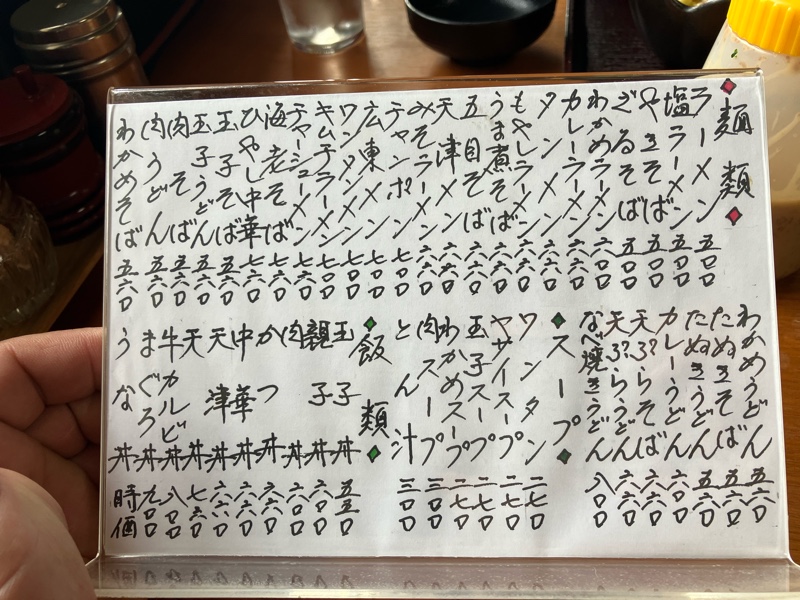 ◆麺類◆
ラーメン 五〇〇
塩ラーメン 五〇〇
やきそば 五〇〇
ざるそば 五〇〇
わかめラーメン 六〇〇
カレーラーメン 六〇〇
タンメン 六〇〇
もやしラーメン 六〇〇
うま煮そば 六〇〇
五目そば 六〇〇
天津メン 六六〇
みそラーメン 六六〇
チャンポン 七〇〇
広東メン 七〇〇
ワンタンメン 七〇〇
キムチラーメン 七〇〇
チャーシューメン 七〇〇
海老そば 七六〇
ひや中華 七六〇
玉子そば 五六〇
玉子うどん 五六〇
肉そば 五六〇
肉うどん 五六〇
わかめそば 五六〇
わかめうどん 五六〇
たぬきそば 五六〇
たぬきうどん 五六〇
カレーうどん 六〇〇
天ぷらそば 六六〇
天ぷらうどん 六六〇
なべ焼きうどん 八〇〇
◆スープ◆
ワンタン 二七〇
ヤサイスープ 二七〇
玉子スープ 二七〇
わかめスープ 二七〇
肉スープ 三〇〇
とん汁 三〇〇
◆飯類◆
玉子丼 五五〇
親子丼 六〇〇
肉丼 六〇〇
かつ丼 六六〇
中華丼 六六〇
天津丼 六六〇
天丼 七六〇
牛カルビ丼 八〇〇
まぐろ丼 九〇〇
うな丼 時価